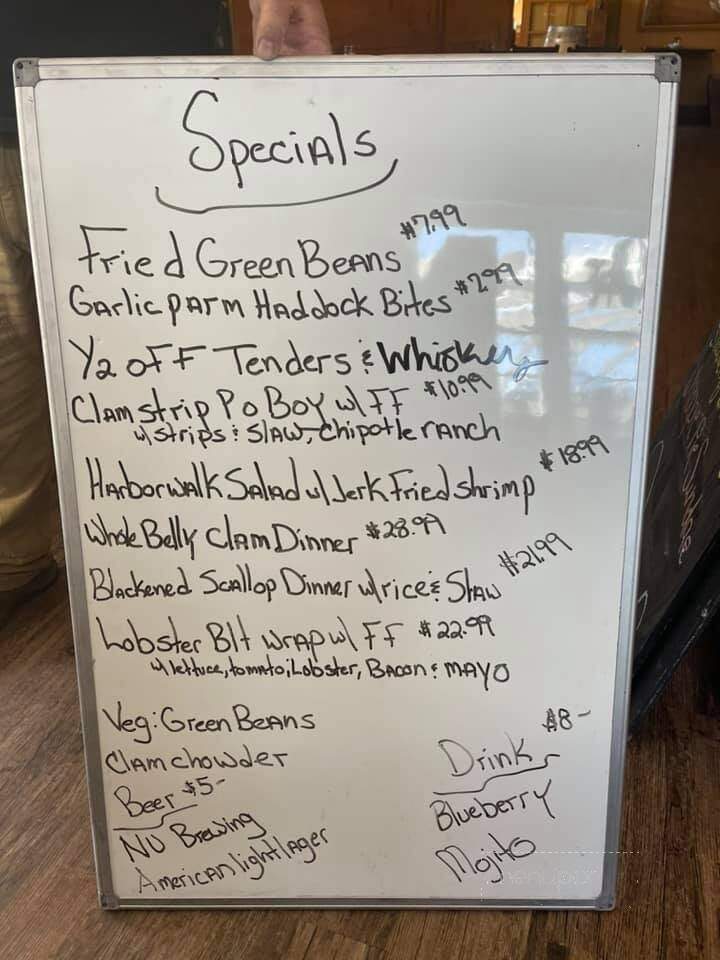 Specials
Fried Green Beans $7.99
Garlic parm Haddock Bites $2.99
1/2 off Tenders & Whiskey
Clam strip Po Boy w/ FF $10.99
w/ strips & slaw, Chipotle ranch
Harborwalk Salad w/ Jerk Fried shrimp $18.99
Whole Belly Clam Dinner $28.99
Blackened Scallop Dinner w/ rice & Slaw $21.99
Lobster Blt wrap w/ FF $22.99
w/ lettuce, tomato, Lobster, Bacon & mayo
Veg: Green Beans
Clam chowder
Beer $5-
NU Brewing
American light lager
Drink $8-
Blueberry
Mojito